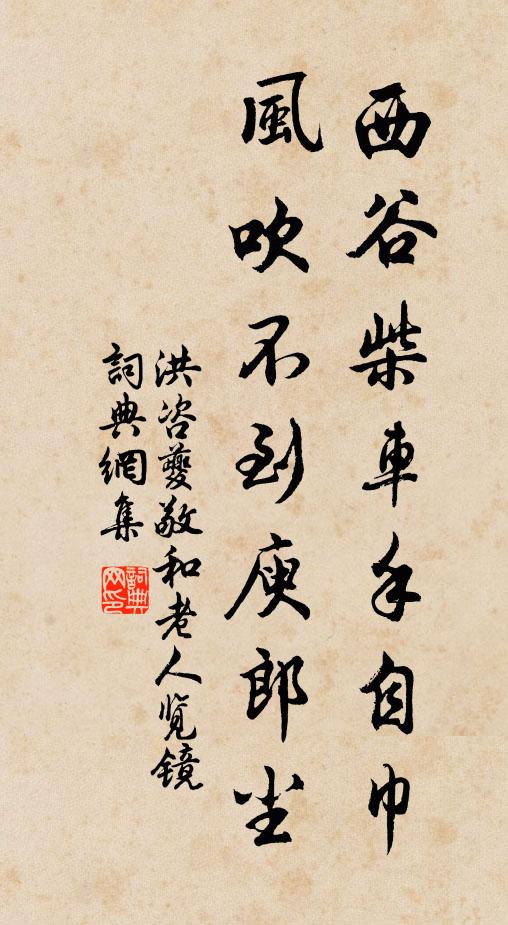 西谷柴車手自巾
風吹不到庾郎尘
洪咨夔敬和老人览镜
詞典網集
詞典网印